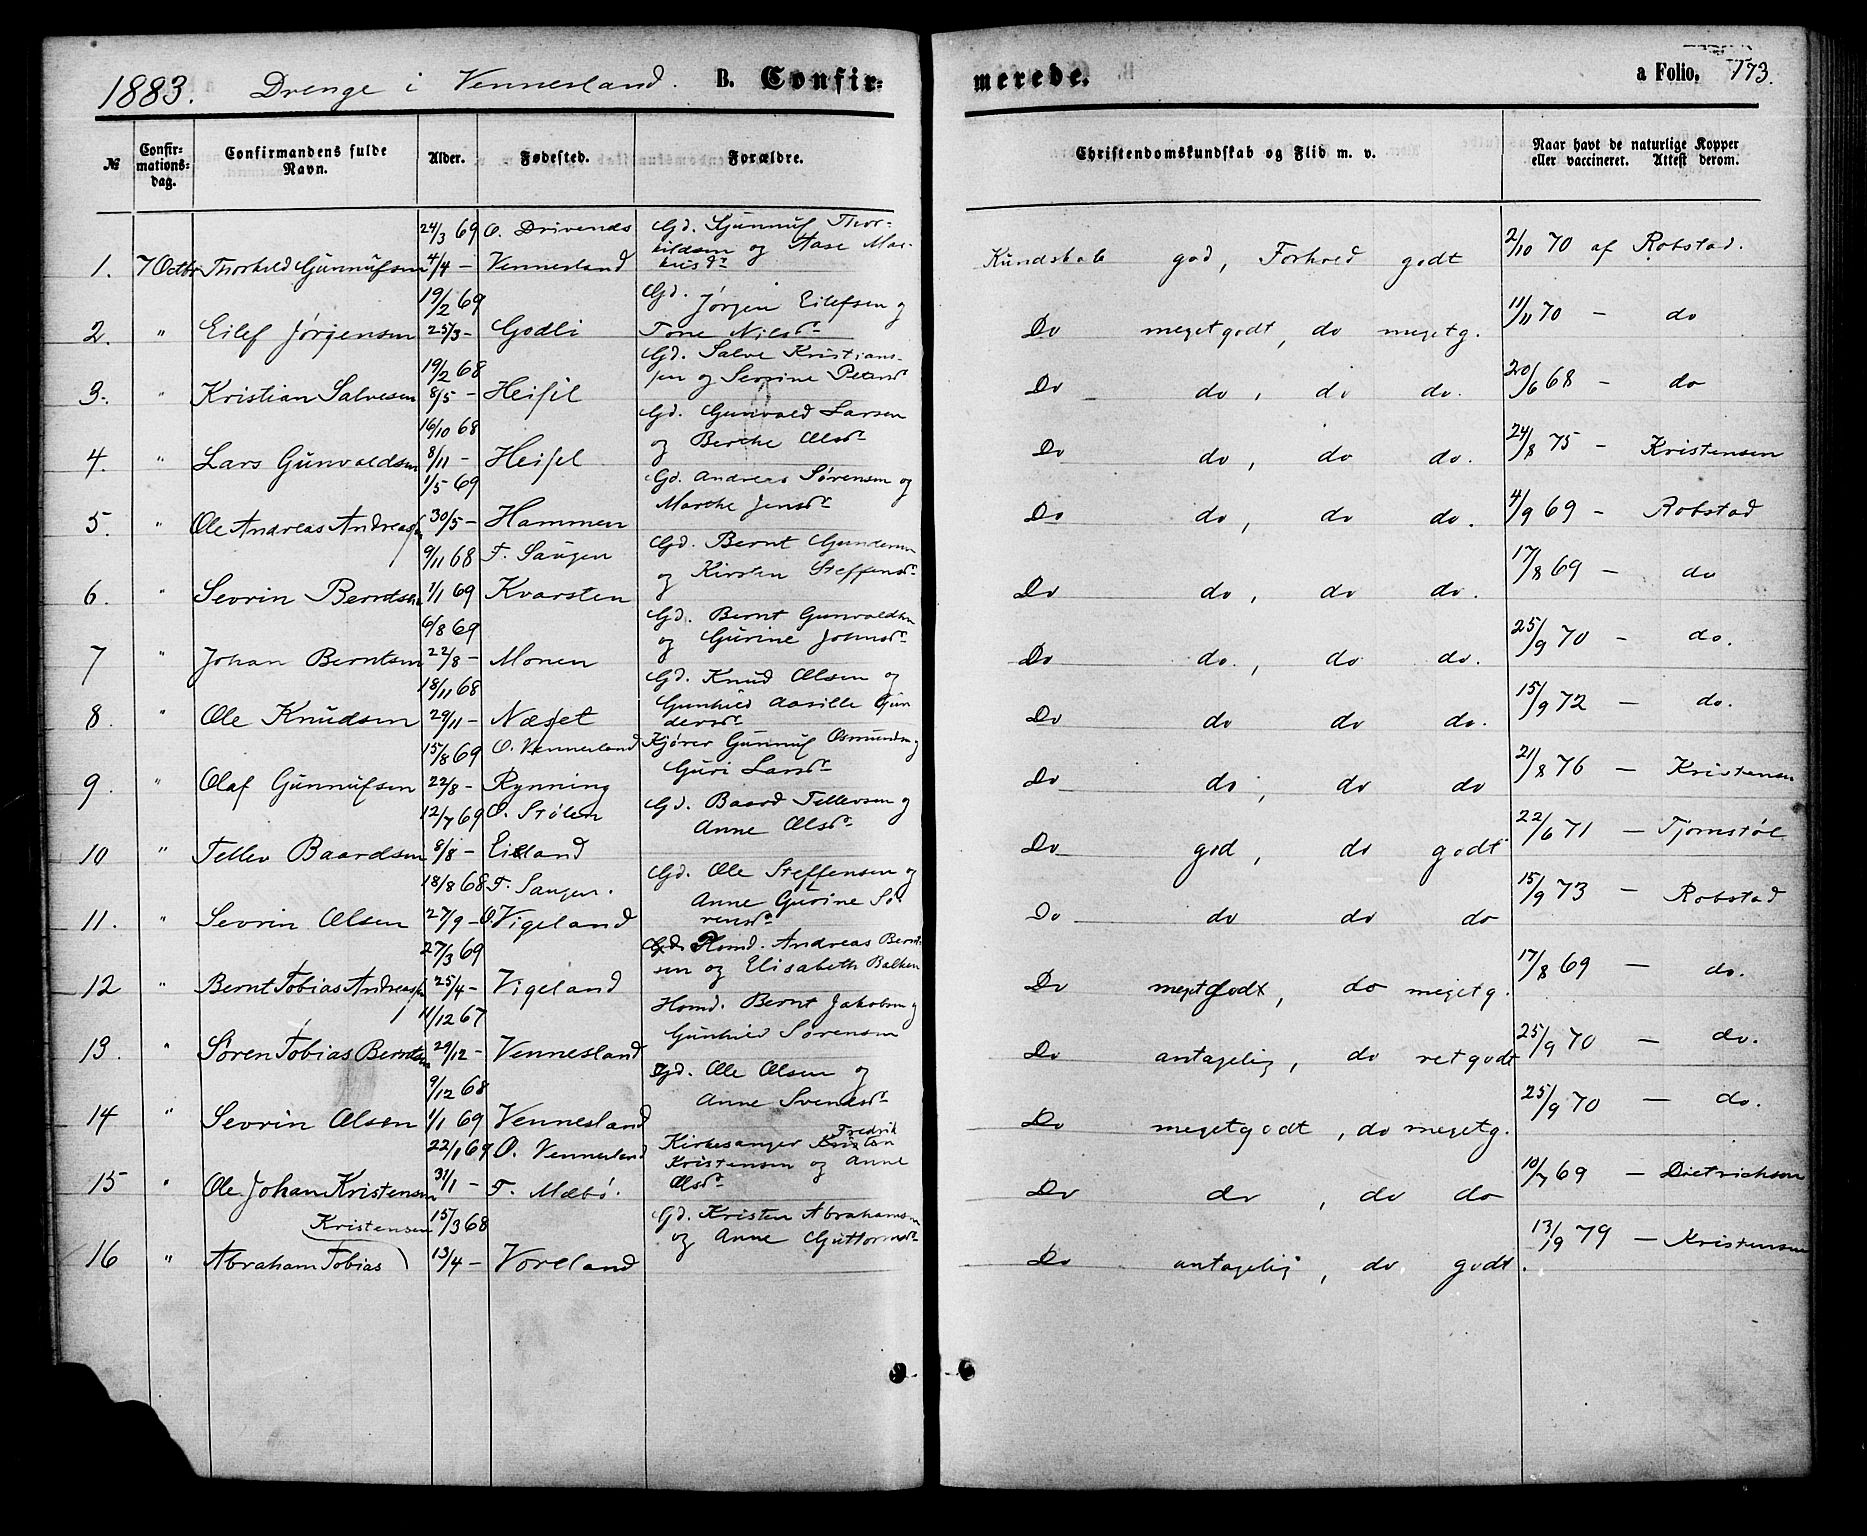 1883. Drenge i Vennesland. B. Confirmerede. a Folio. 173.
№ Confirmationsdag. Confirmandens fulde Navn. Alder. Fødested. Forældre. Christendomskundskab og Flid m. v. Naar havt de naturlige Kopper eller vaccineret. Attest derom.
24/3 69 O. Drivends Gd. Gunnuf Thor-
kildsen og Aase Mar-
1. 7 Octbr Thorkild Gunnufsen 4/4 — Vennesland kusdr Kundskab god, Forhold godt 2/10 70 af Robstad.
19/2 69 Gd. Jørgen Eilefsen og
2. " Eilef Jørgensen 25/3 - Godli Tone Nilsdr Do megetgodt, do megetg. 11/11 70 — do
19/2 68 Gd. Salve Kristians-
3. " Kristian Salvesen 8/5 - Heisel sen og Serine Petersdr Do do, do do. 20/6 68 — do
16/10 68 Gd. Gunvald Larsen
4. " Lars Gunvaldsen 8/11 - Heisel og Berthe Olsdr Do do, do do. 24/8 75 — Kristensen
1/5 69 Gd. Andreas Sørensen og
5. " Ole Andreas Andreassen 30/5 - Hammen Marthe Jensdr Do do, do do. 4/9 69 — Robstad
9/11 68 F. Saugen Gd. Bernt Gundersen
6. " Sevrin Berntsen 1/1 69 Kvarsten og Kirsten Steffensdr Do do, do do. 17/8 69 — do
6/8 69 Gd. Bernt Gunvaldsen
7 " Johan Berntsen 22/8 - Monen og Gurine Johnsdr Do do., do do. 25/9 70 — do.
18/11 68 Gd. Knud Olsen og
Gunhild Aasille Gun
8. " Ole Knudsen 29/11 - Næset dersdr Do do do do. 15/9 72 — do.
15/8 69 O. Vennesland Kjører Gunnuf Osmundsen og
9. " Olaf Gunnufsen 22/8 - Rynning Guri Larsdr Do do, do do 21/8 76 — Kristensen
12/7 69 O. Stølen Gd. Baard Tellevsen og
10 " Tellev Baardsen 8/8 - Eieland Anne Olsdr Do god, do godt 22/6 71 — Tjomstøl
18/8 68 F. Saugen. Gd. Ole Steffensen og
Anne Gurine Sø
11. " Sevrin Olsen 27/9 - O. Vigeland rensdr Do do do do 15/9 73 — Robstad
27/3 69 Homd. Andreas Bernt
12 " Bernt Tobias Andreassen 25/4 - Vigeland sen og Elisabeth Balken Do megetgodt, do megetg. 17/8 69 — do.
11/12 67 Homd. Bernt Jakobsen og
13. " Søren Tobias Berntsen 29/12 - Vennesland Gunhild Sørensen Do antagelig, do retgodt 25/9 70 — do.
9/12 68 Gd. Ole Olsen og
14 " Sevrin Olsen 1/1 69 Vennesland Anne Svendsdr Do megetgodt, do megetg. 25/9 70 — do.
22/1 69 O. Vennesland Kirkesanger Fredrik
Kristensen og Anne
15 " Ole Johan Kristensen 31/1 - F. Mæbø. Olsdr Do do, do do 10/7 69 — Dietrichson
Kristensen 15/3 68 Gd. Kristen Abrahamsen
16 " Abraham Tobias 13/4 - Voreland og Anne Guttormsdr Do antagelig, do godt. 13/9 79 — Kristensen